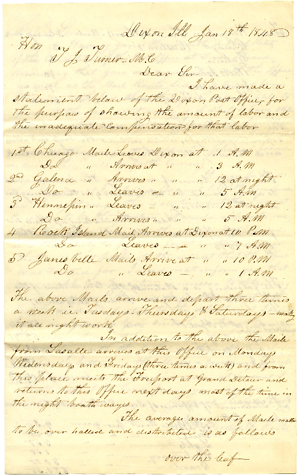 Dixon Ill Jan 18th 1848
Hon
T. J. Turner M.C.
Dear Sir
I have made a
statement below of the Dixon Post Office, for
the purpose of showing the amount of labor and
the inadequate compensation for that labor
1st Chicago Mail Leaves Dixon at 1 A.M
Do " Arrives at " " 3 A M
2d Galena " Arrives " " 12 at night
Do " Leaves " " 5 A M
3d Hennepin " Leaves " " 12 at night
Do " Arrives " " 5 A.M
4 Rock Island Mail Arrives at Dixon at 10 P.M.
Do Leaves " " 7 A M
5d Janesville Mails Arrive at " " 10 P.M
Do " Leaves " " 1 A M
The above Mails arrive and depart three times
a week ie. Tuesdays Thursdays & Saturdays
it all night work
In addition to the above the Mail
from Lasalle arrives at this Office on Mondays
Wednesdays and Fridays (three times a week) and from
this place meets the Freeport at Grand Detour and
returns to this Office next days most of the time in
the night both ways
The average amount of Mail matter
to be over halled and distributed is as follows
over the leaf